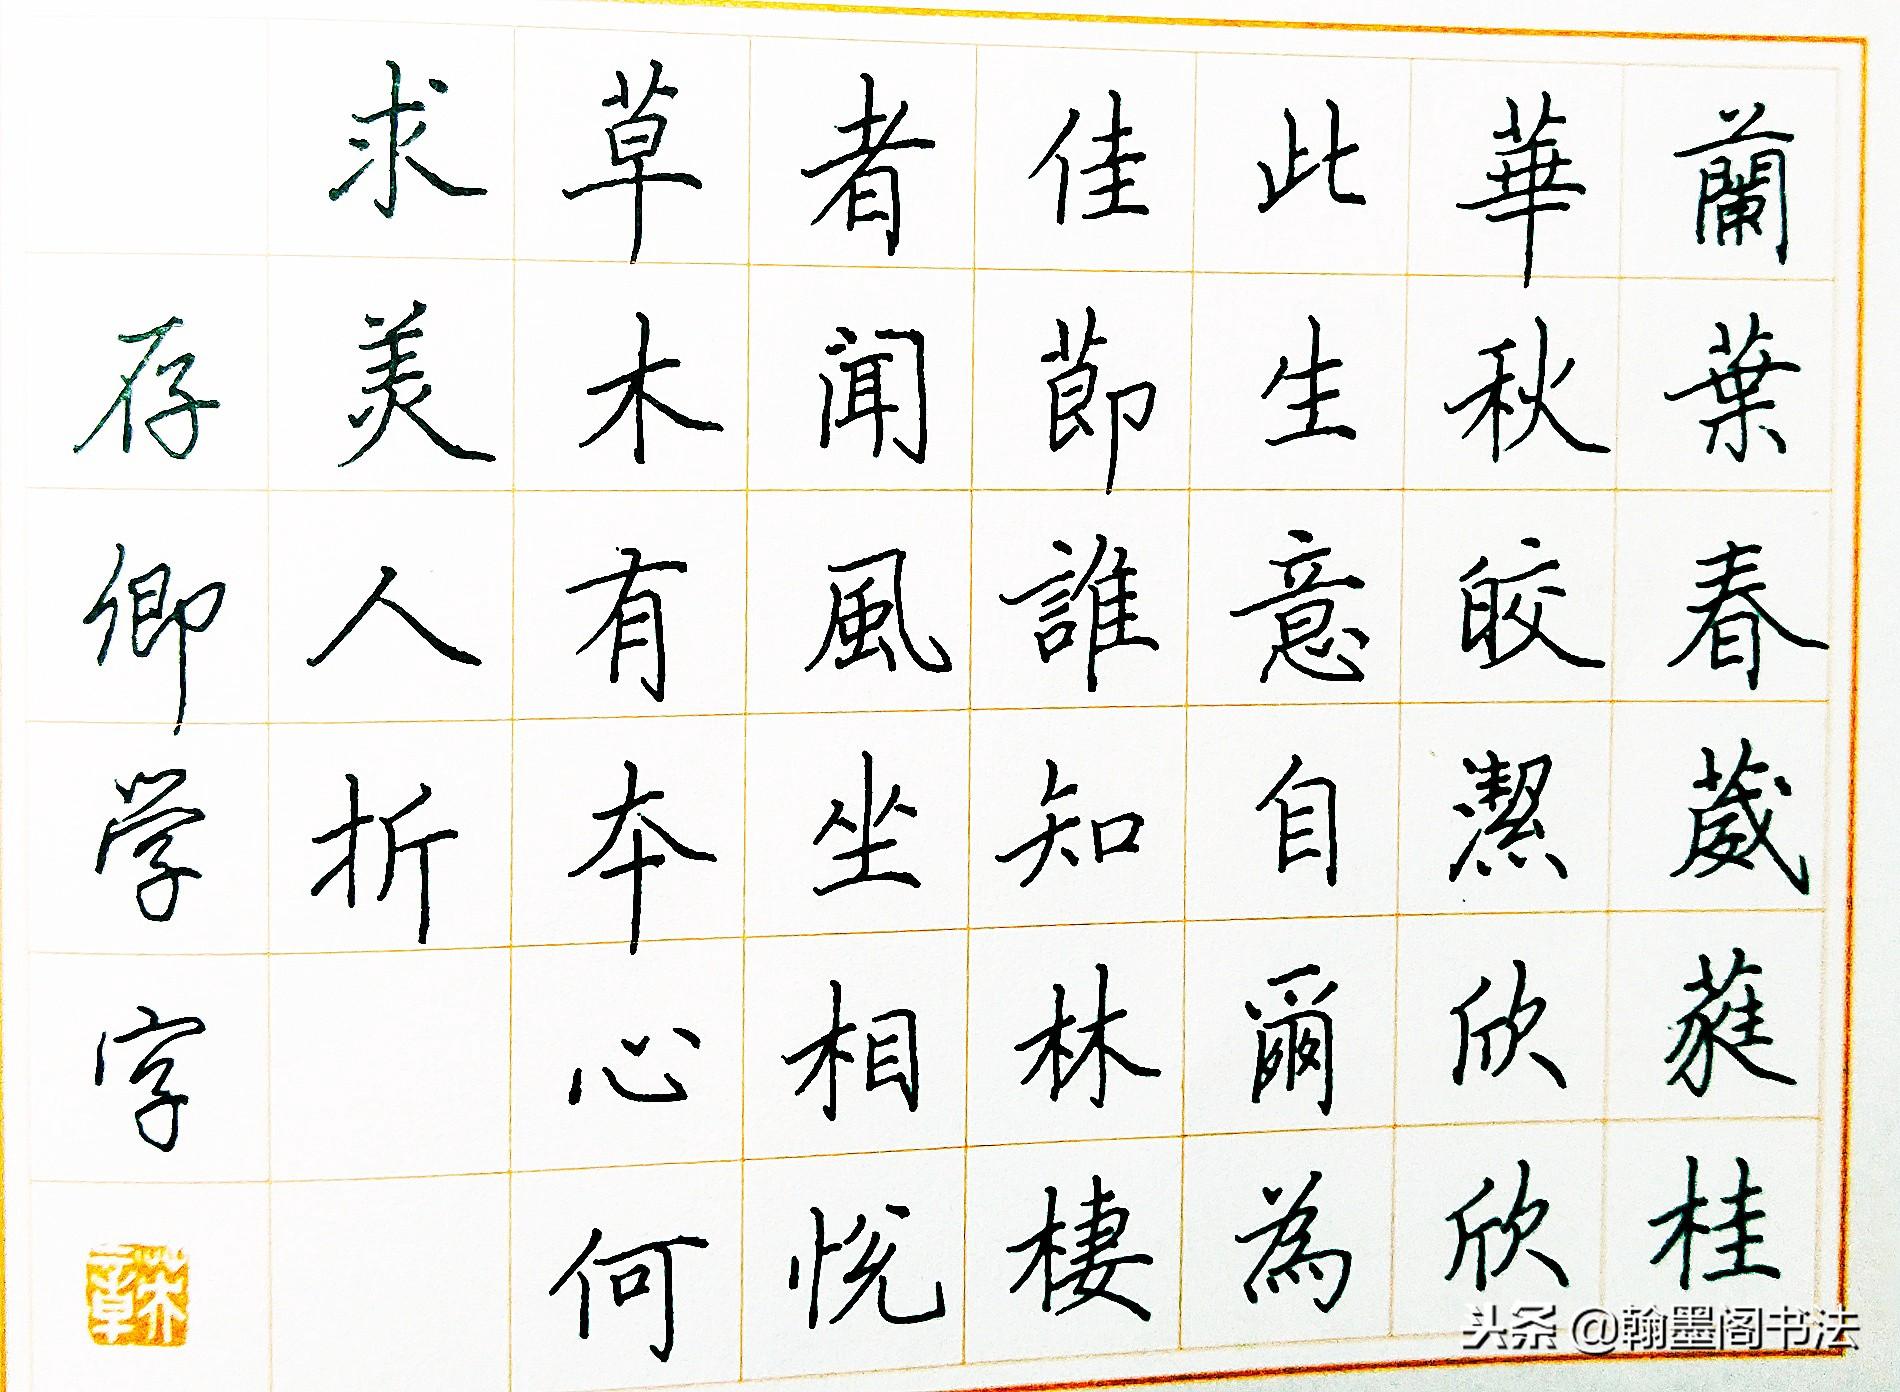 蘭葉春葳蕤桂
華秋皎潔欣欣
此生意自爾為
佳節誰知林棲
者闻風坐相悅
草木有本心何
求美人折
存卿学字
头条 @翰墨阁书法